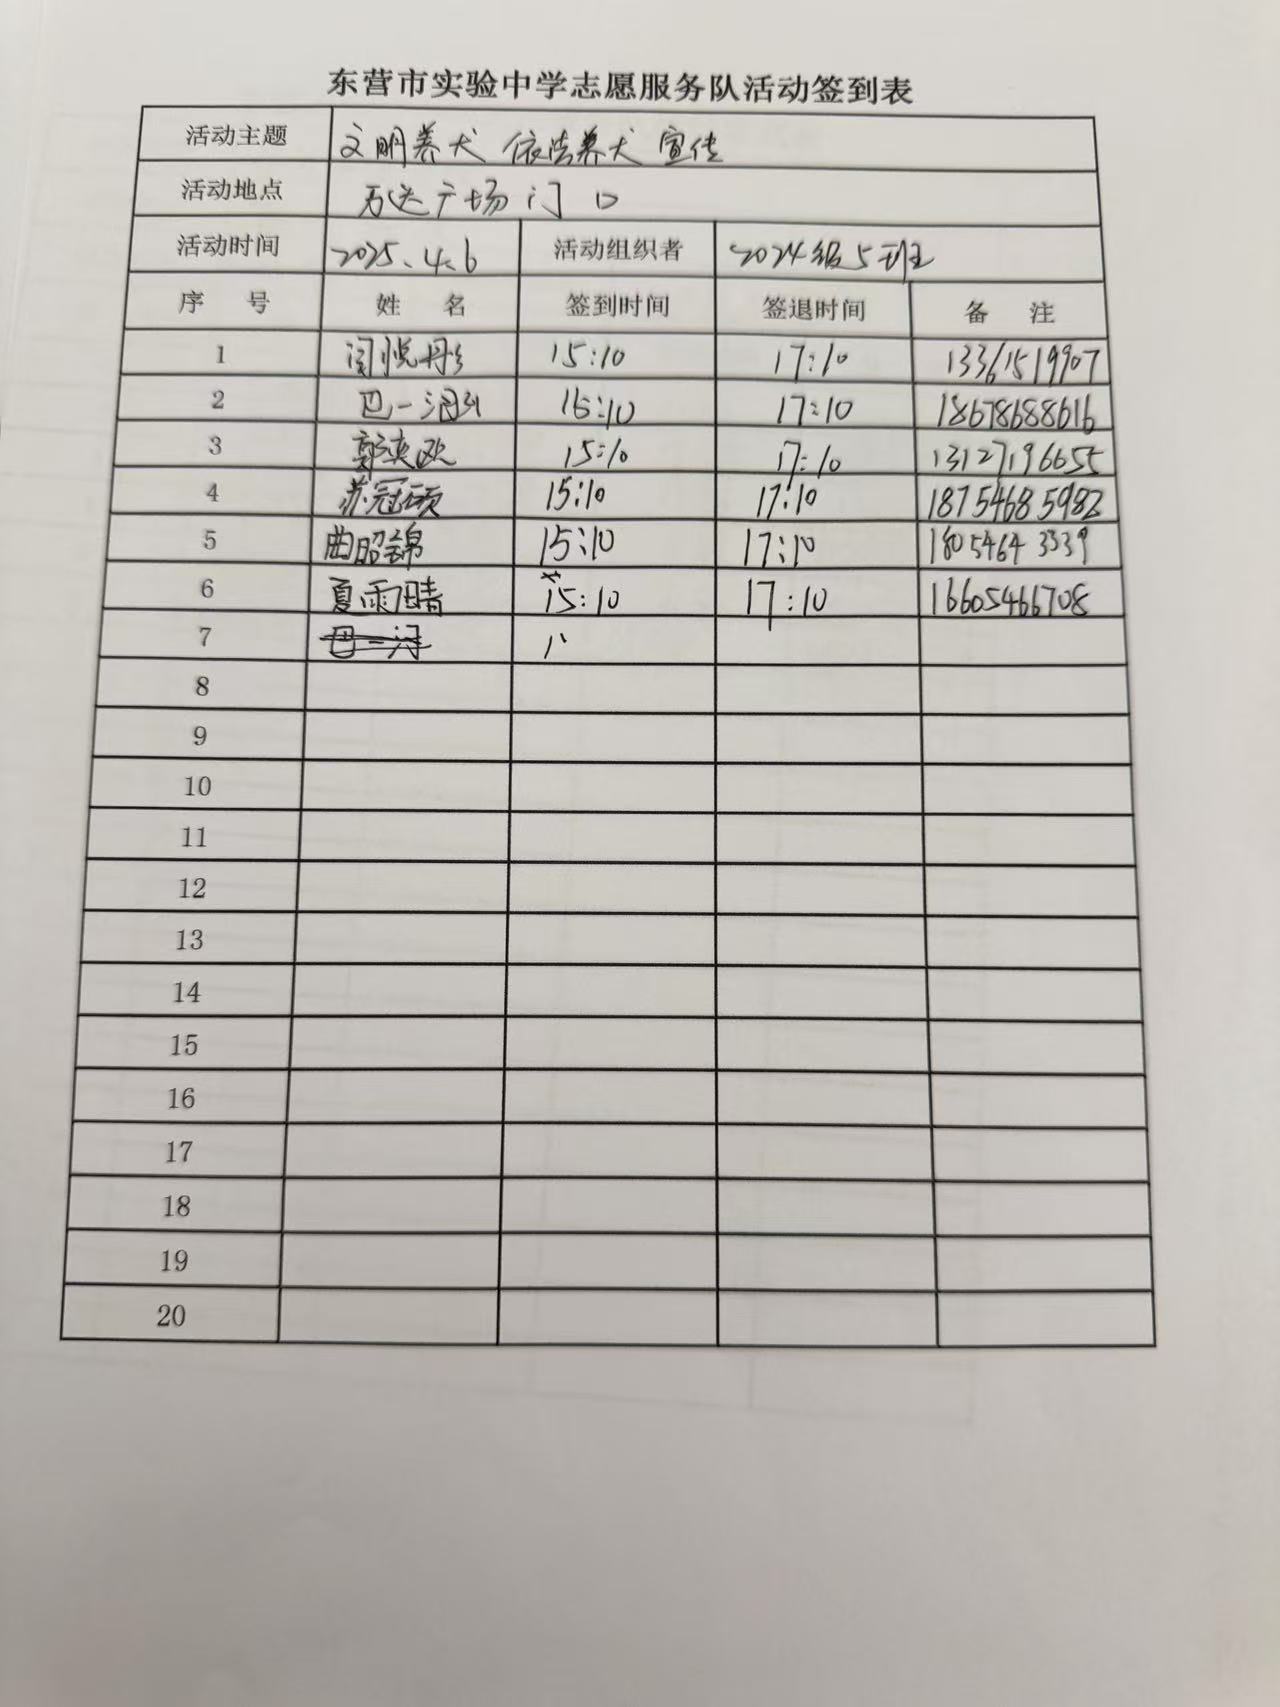 东营市实验中学志愿服务队活动签到表
活动主题 文明养犬 依法养犬 宣传
活动地点 万达广场门口
活动时间 2025.4.6 活动组织者 2024级5班
序 号 姓 名 签到时间 签退时间 备 注
1 闫悦彤 15:10 17:10 13361519907
2 巴一涵 15:10 17:10 18678688616
3 郭奕欧 15:10 17:10 13127196655
4 苏冠硕 15:10 17:10 18754685982
5 曲昭锦 15:10 17:10 18054643339
6 夏雨晴 15:10 17:10 16605466708
7 巴一
8
9
10
11
12
13
14
15
16
17
18
19
20